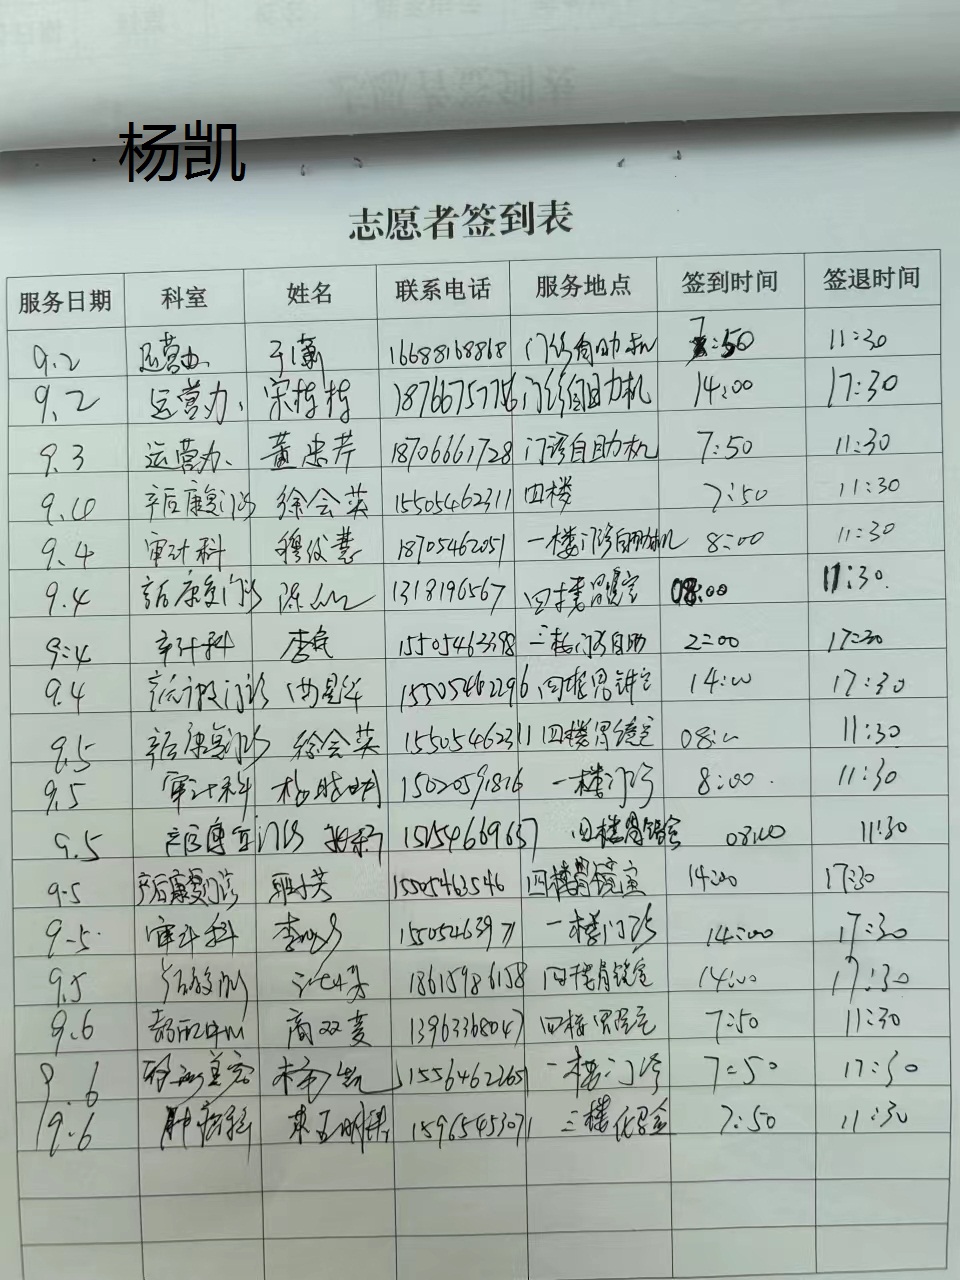 杨凯
志愿者签到表
服务日期 科室 姓名 联系电话 服务地点 签到时间 签退时间
9.2 运营办 于潇 16688168868 门诊自助机 7:50 11:30
9.2 运营办、 宋梅梅 18766757756 门诊自助机 14:00 17:30
9.3 运营办、 董忠芹 18706661728 门诊自助机 7:50 11:30
9.4 产后康复门诊 徐会英 15505462311 四楼 7:50 11:30
9.4 审计科 穆俊慧 18705462051 一楼门诊自助机 8:00 11:30
9.4 产后康复门诊 陈 1318196567 四楼胃镜室 08:00 11:30
9:4 审计科 李 15505463398 门诊自助 2:00 17:30
9.4 门诊 15505462296 四楼胃镜室 14:00 17:30
9.5 产后康复门诊 徐会英 15505462311 四楼胃镜室 08: 11:30
9.5 审计科 杨晓明 15020591816 一楼门诊 8:00 11:30
9.5 产后康复门诊 15154669657 四楼胃镜室 08:00 11:30
9.5 产后康复门诊 英 15505463546 四楼胃镜室 14:00 17:30
9.5 审计科 李 1550546397 一楼门诊 14:00 17:30
9.5 18615986158 四楼胃镜室 14:00 17:30
9.6 中心 商双 13963368047 四楼胃镜室 7:50 11:30
9.6 美容 杨凯 1556462265 一楼门诊 7:50 17:30
9.6 肿瘤科 明 15965453071 三楼化 7:50 11:30